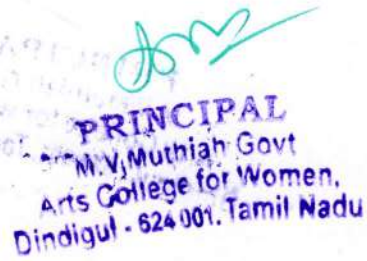 PRINCIPAL
M.V,Muthiah Govt
Arts College for Women,
Dindigul - 624 001. Tamil Nadu